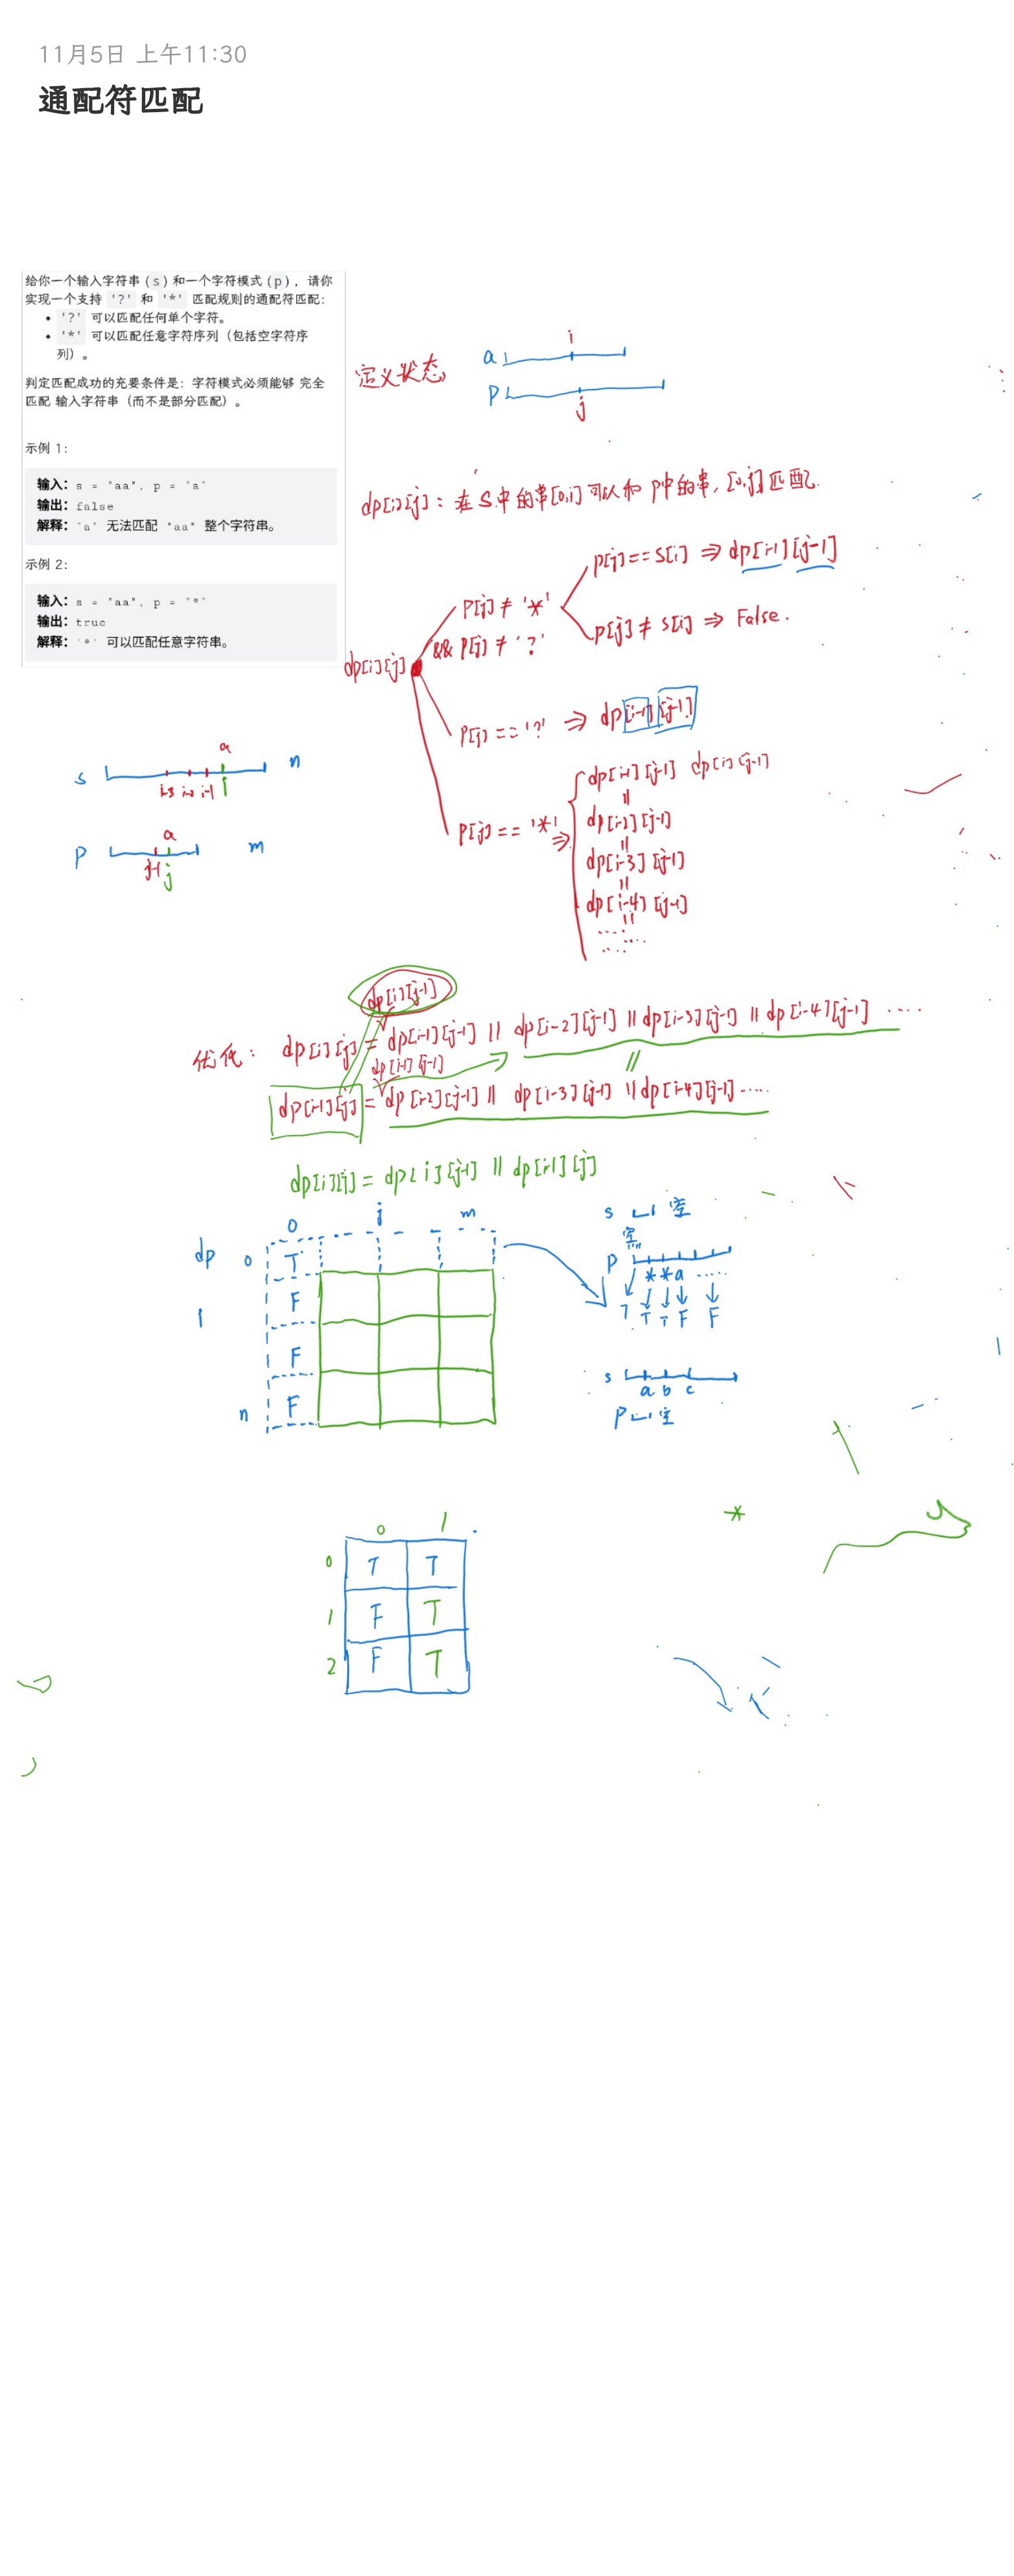 11月5日 上午11:30
通配符匹配
给你一个输入字符串 (s) 和一个字符模式 (p) ，请你
实现一个支持 '?' 和 '*' 匹配规则的通配符匹配：
• '?' 可以匹配任何单个字符。
• '*' 可以匹配任意字符序列（包括空字符序
列）。
判定匹配成功的充要条件是：字符模式必须能够 完全
匹配 输入字符串（而不是部分匹配）。
示例 1：
输入：s = "aa", p = "a"
输出：false
解释："a" 无法匹配 "aa" 整个字符串。
示例 2：
输入：s = "aa", p = "*"
输出：true
解释：'*' 可以匹配任意字符串。
定义状态
i
a
p
j
dp[i][j]：在 s 中的串[0,i] 可以和 p中的串, [0,j] 匹配.
dp[i][j]
p[j] ≠ '*'
&& p[j] ≠ '?'
p[j] == s[i] ⇒ dp[i-1][j-1]
p[j] ≠ s[i] ⇒ False.
p[j] == '?' ⇒ dp[i-1][j-1]
p[j] == '*' ⇒
dp[i-1][j-1] dp[i][j-1]
||
dp[i-2][j-1]
||
dp[i-3][j-1]
||
dp[i-4][j-1]
||
......
......
a
s n
i-3 i-2 i-1 i
a
p m
j-1 j
dp[i][j-1]
优化： dp[i][j] = dp[i-1][j-1] || dp[i-2][j-1] || dp[i-3][j-1] || dp[i-4][j-1] ....
dp[i-1][j-1]
dp[i-1][j] = dp[i-2][j-1] || dp[i-3][j-1] || dp[i-4][j-1] .....
||
dp[i][j] = dp[i][j-1] || dp[i-1][j]
0 j m
dp 0 T
1 F
F
n F
s 空
空
p
* * a .....
T T T F F
s
a b c
p 空
0 1
0 T T
1 F T
2 F T
*